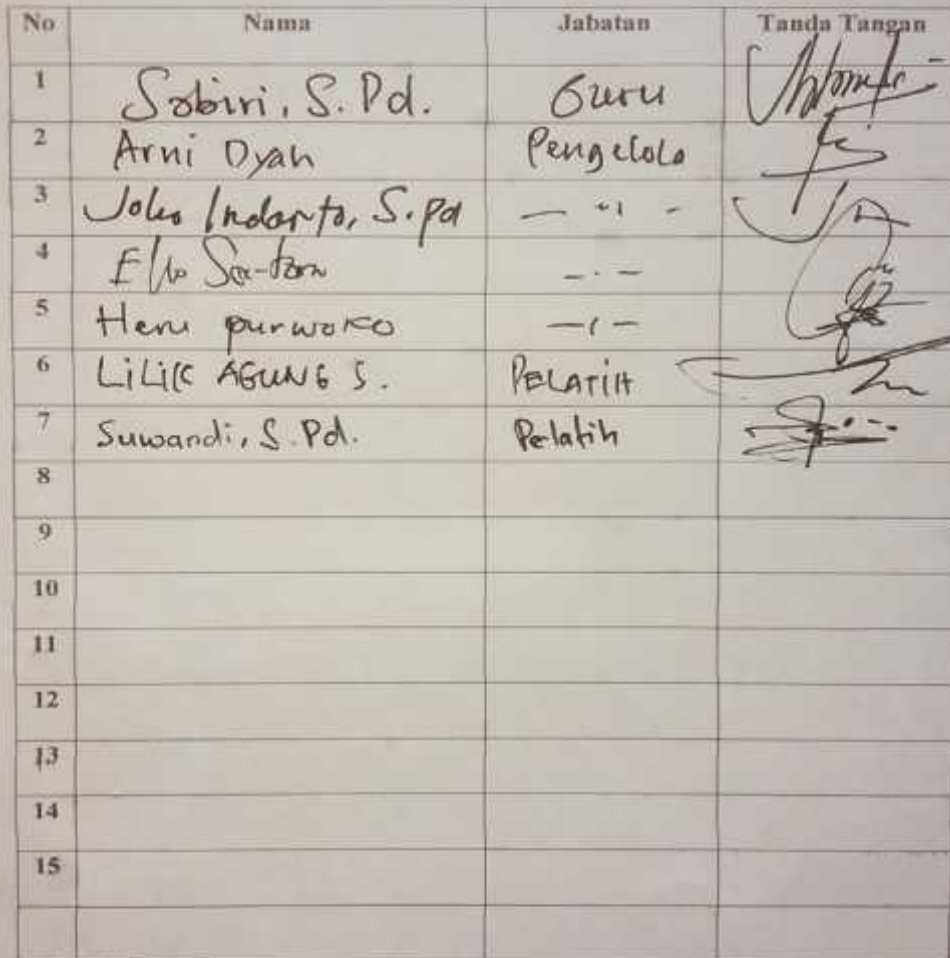 No Nama Jabatan Tanda Tangan
1 Sobiri, S.Pd. Guru
2 Arni Dyah Pengelola
3 Joko Indarto, S.Pd — " —
4 - . -
5 Heru purwoko — " —
6 LiLiK AGUNG S. PELATIH
7 Suwandi, S.Pd. Pelatih
8
9
10
11
12
13
14
15